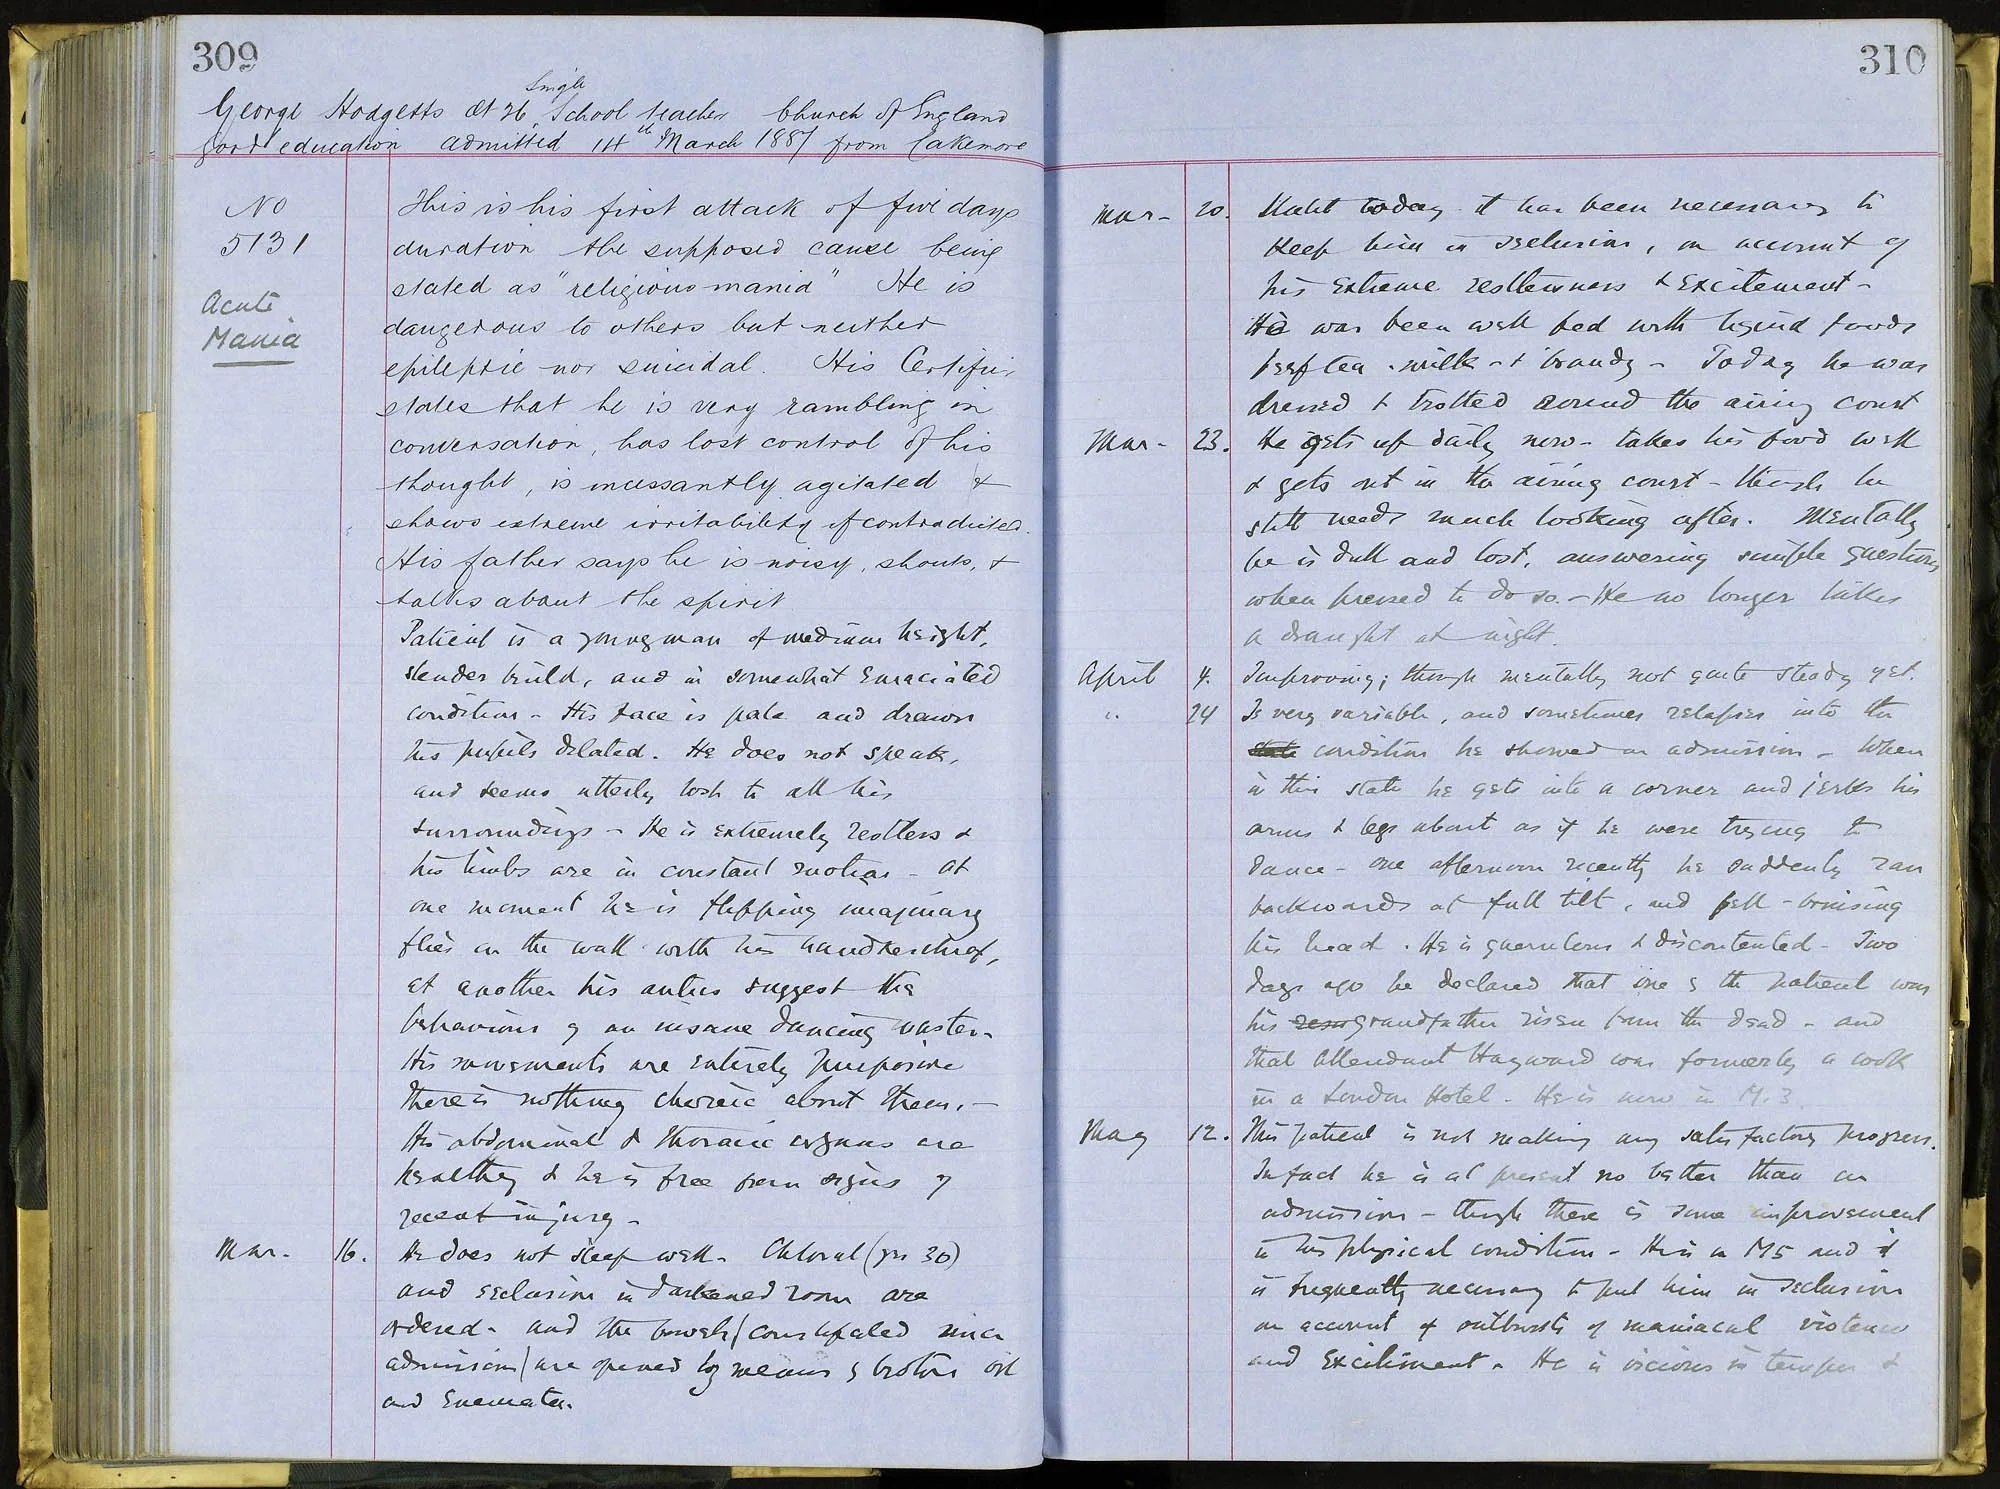 309
Single
George Hodgetts æt 26 School teacher Church of England
good education admitted 14th March 1887 from Cakemore
No
5131
Acute
Mania
This is his first attack of five days
duration the supposed cause being
stated as "religious mania" He is
dangerous to others but neither
epileptic nor suicidal. His Certific.
states that he is very rambling in
conversation, has lost control of his
thought, is incessantly agitated &
shows extreme irritability if contradicted.
His father says he is noisy, shouts, &
talks about the spirit
Patient is a young man of medium height,
slender build, and in somewhat emaciated
condition - His face is pale and drawn
his pupils dilated. He does not speak,
and seems utterly lost to all his
surroundings - He is extremely restless &
his limbs are in constant motion - at
one moment he is flipping imaginary
flies on the wall with his handkerchief,
at another his antics suggest the
behaviour of an insane dancing master.
His movements are entirely purposive
there is nothing choreic about them. -
His abdominal & thoracic organs are
healthy & he is free from signs of
recent injury -
Mar. 16. He does not sleep well. Chloral (grs 30)
and seclusion in darkened room are
ordered - and the bowels (constipated since
admission) are opened by means of croton oil
and enemata.
310
Mar - 20. Until today it has been necessary to
keep him in seclusion, on account of
his extreme restlessness & excitement -
He was been well fed with liquid foods
beef tea - milk - & brandy - Today he was
dressed & trotted around the airing court
Mar - 23. He gets up daily now - takes his food well
& gets out in the airing court - though he
still needs much looking after. Mentally
he is dull and lost, answering simple questions
when pressed to do so. - He no longer takes
a draught at night.
April 4. Improving; though mentally not quite steady yet.
" 24 Is very variable, and sometimes relapses into the
state condition he showed on admission - When
in this state he gets into a corner and jerks his
arms & legs about as if he were trying to
dance - one afternoon recently he suddenly ran
backwards at full tilt, and fell - bruising
his head. He is querulous & discontented - Two
days ago he declared that one of the patient was
his grandfather risen from the dead - and
that Attendant Hayward was formerly a cook
in a London Hotel - He is now in M.3.
May 12. This patient is not making any satisfactory progress.
In fact he is at present no better than on
admission - though there is some improvement
in his physical condition - He is in M5 and it
is frequently necessary to put him in seclusion
on account of outbursts of maniacal violence
and excitement. He is vicious in temper &